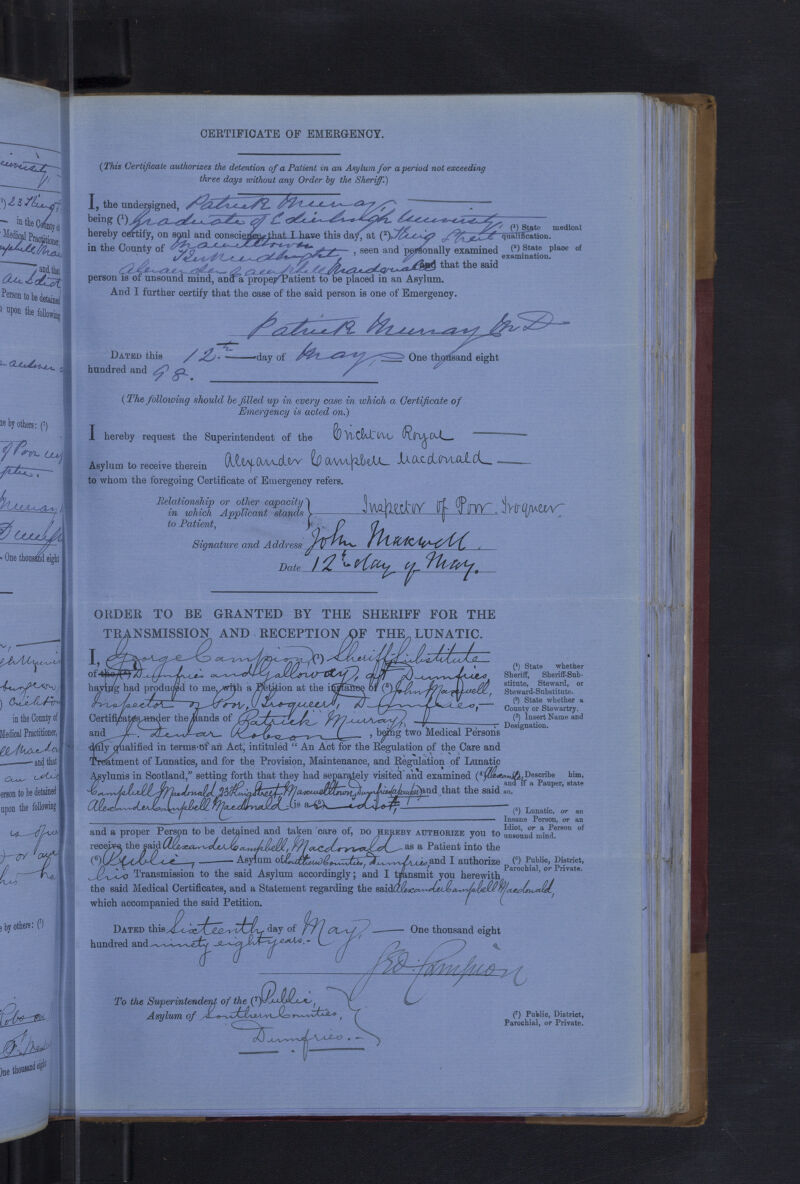 CERTIFICATE OF EMERGENCY.
(This Certificate authorizes the detention of a Patient in an Asylum for a period not exceeding
three days without any Order by the Sheriff.)
I, the undersigned, Patrick Murray,
being (¹) Graduate of Edinburgh University,
hereby certify, on soul and conscience, that I have this day, at (²) King Street
Maxwelltown
in the County of Kirkcudbright, seen and personally examined
Alexander Campbell Macdonald and that the said
person is of unsound mind, and a proper Patient to be placed in an Asylum.
And I further certify that the case of the said person is one of Emergency.
(¹) State medical
qualification.
(²) State place of
examination.
Patrick Murray M D
DATED this 12th day of May, One thousand eight
hundred and 98.
(The following should be filled up in every case in which a Certificate of
Emergency is acted on.)
I hereby request the Superintendent of the Crichton Royal
Asylum to receive therein Alexander Campbell Macdonald
to whom the foregoing Certificate of Emergency refers.
Relationship or other capacity
in which Applicant stands
to Patient,
Inspector of Poor. Troqueer.
Signature and Address John Maxwell.
Date 12th day of May.
ORDER TO BE GRANTED BY THE SHERIFF FOR THE
TRANSMISSION AND RECEPTION OF THE LUNATIC.
I, George Campion, (¹) Sheriff Substitute
of the (²) Dumfries and Galloway, at Dumfries,
having had produced to me, with a Petition at the instance of (³) John Maxwell,
Inspector of Poor, Troqueer, Dumfries,
Certificates under the hands of Patrick Murray,
and J. Dewar Robson, being two Medical Persons
duly qualified in terms of an Act, intituled "An Act for the Regulation of the Care and
Treatment of Lunatics, and for the Provision, Maintenance, and Regulation of Lunatic
Asylums in Scotland," setting forth that they had separately visited and examined (⁴) Alexander
Campbell Macdonald, 23 King Street, Maxwelltown, Dumfries (pauper) and that the said
Alexander Campbell Macdonald is a (⁵) an idiot,
and a proper Person to be detained and taken care of, DO HEREBY AUTHORIZE you to
receive the said Alexander Campbell Macdonald as a Patient into the
(⁶) Public, Asylum of Southern Counties, Dumfries and I authorize
his Transmission to the said Asylum accordingly; and I transmit you herewith
the said Medical Certificates, and a Statement regarding the said Alexander Campbell Macdonald,
which accompanied the said Petition.
(¹) State whether
Sheriff, Sheriff-Sub-
stitute, Steward, or
Steward-Substitute.
(²) State whether a
County or Stewartry.
(³) Insert Name and
Designation.
Describe him,
and if a Pauper, state
so.
(⁵) Lunatic, or an
Insane Person, or an
Idiot, or a Person of
unsound mind.
(⁶) Public, District,
Parochial, or Private.
DATED this Sixteenth day of May, One thousand eight
hundred and ninety eight years.
Geo. Campion
To the Superintendent of the (⁷) Public,
Asylum of Southern Counties,
Dumfries.
(⁷) Public, District,
Parochial, or Private.